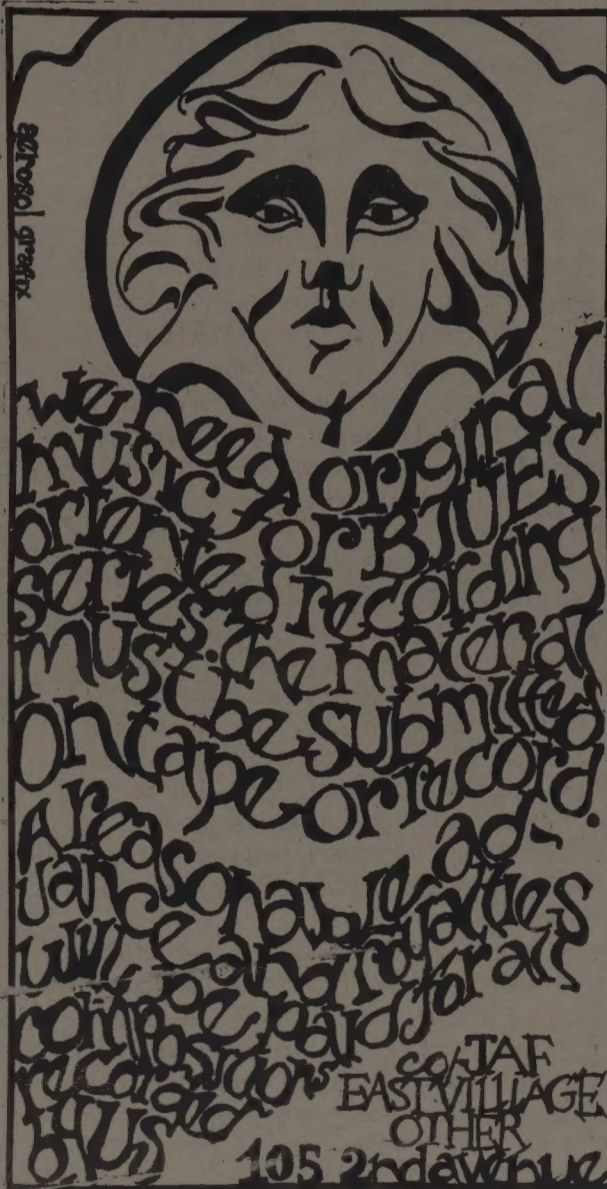 aerosol grafix
we need original
music for BLUES
oriented recording
series. the material
must be submitted
on tape or record.
A reasonable ad-
vance and royalties
will be paid for all
compositions
recorded
by us
co/JAF
EAST VILLIAGE
OTHER
105 2nd avenue